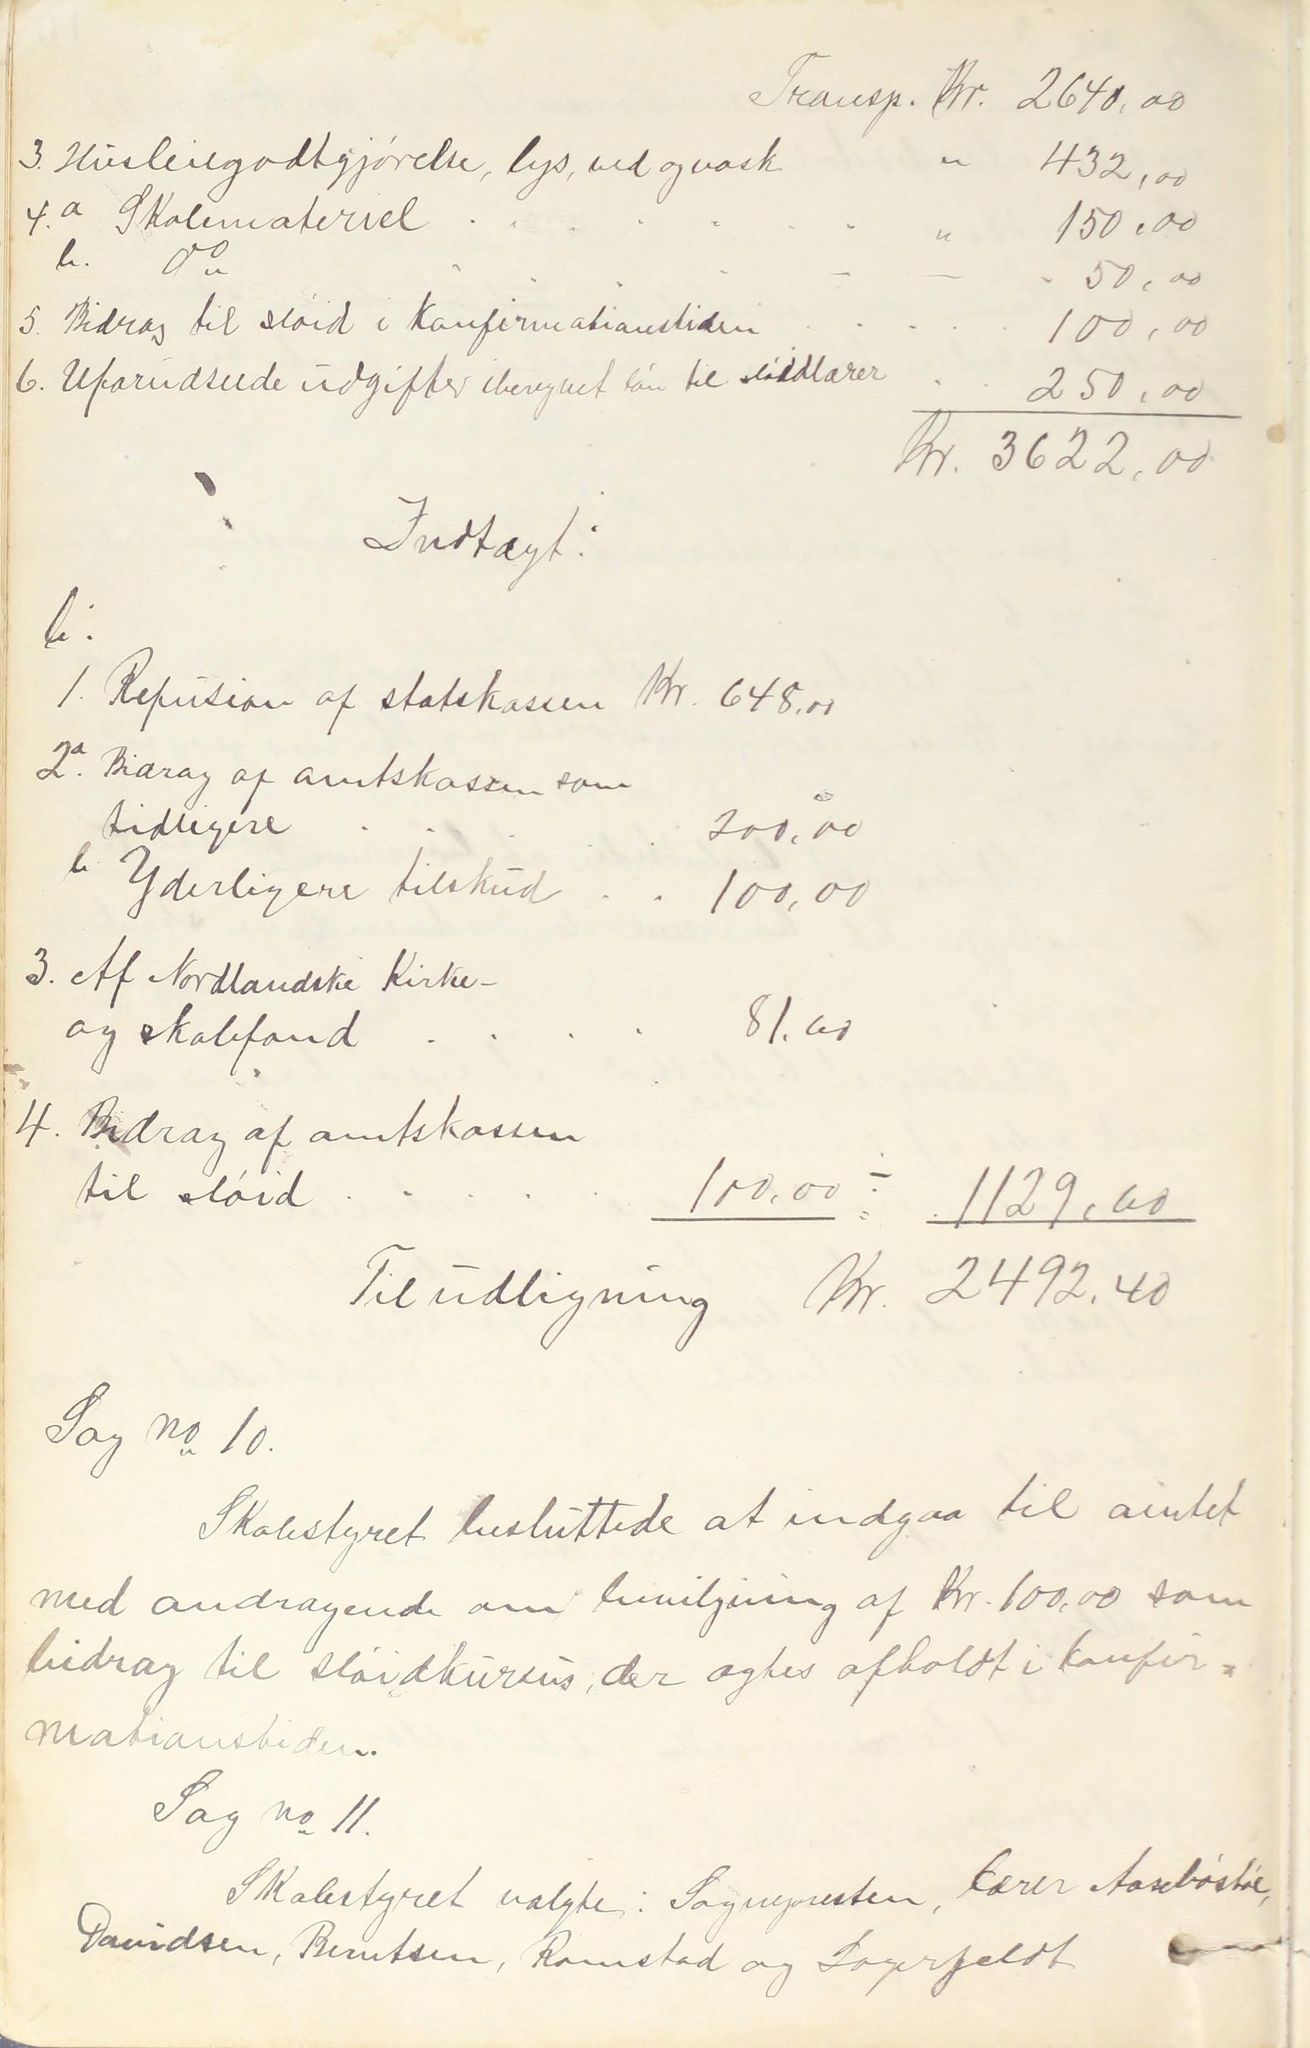 Transp. Kr. 2640,00
3. Husleiegodtgjørelse, lys, ved og vask " 432,00
4.a Skolemateriel . . . . . " 150,00
b. do . . . - - - 50,00
5. Bidrag til sløid i konfirmationstiden . . . . . 100,00
6. Uforudseede udgifter iberegnet løn til sløidlærer . . 250,00
Kr. 3622,00
Indtægt:
b:
1. Refusion af statskassen Kr. 648.00
2a. Bidrag af amtskassen som
tidligere . . . . 200,00
b Yderligere tilskud . . 100,00
3. Af Nordlandske Kirke-
og skolefond . . . . 81.60
4. Bidrag af amtskassen
til sløid . . . . . 100,00 ÷ 1129,60
Til udligning Kr. 2492.40
Sag no 10.
Skolestyret besluttede at indgaa til amtet
med andragende om bevilgning af Kr. 100,00 som
bidrag til sløidkursus, der agtes afholdt i konfir=
mationstiden.
Sag no 11.
Skolestyret valgte: Sognepresten, lærer
Davidsen, Berntsen, Ramstad og